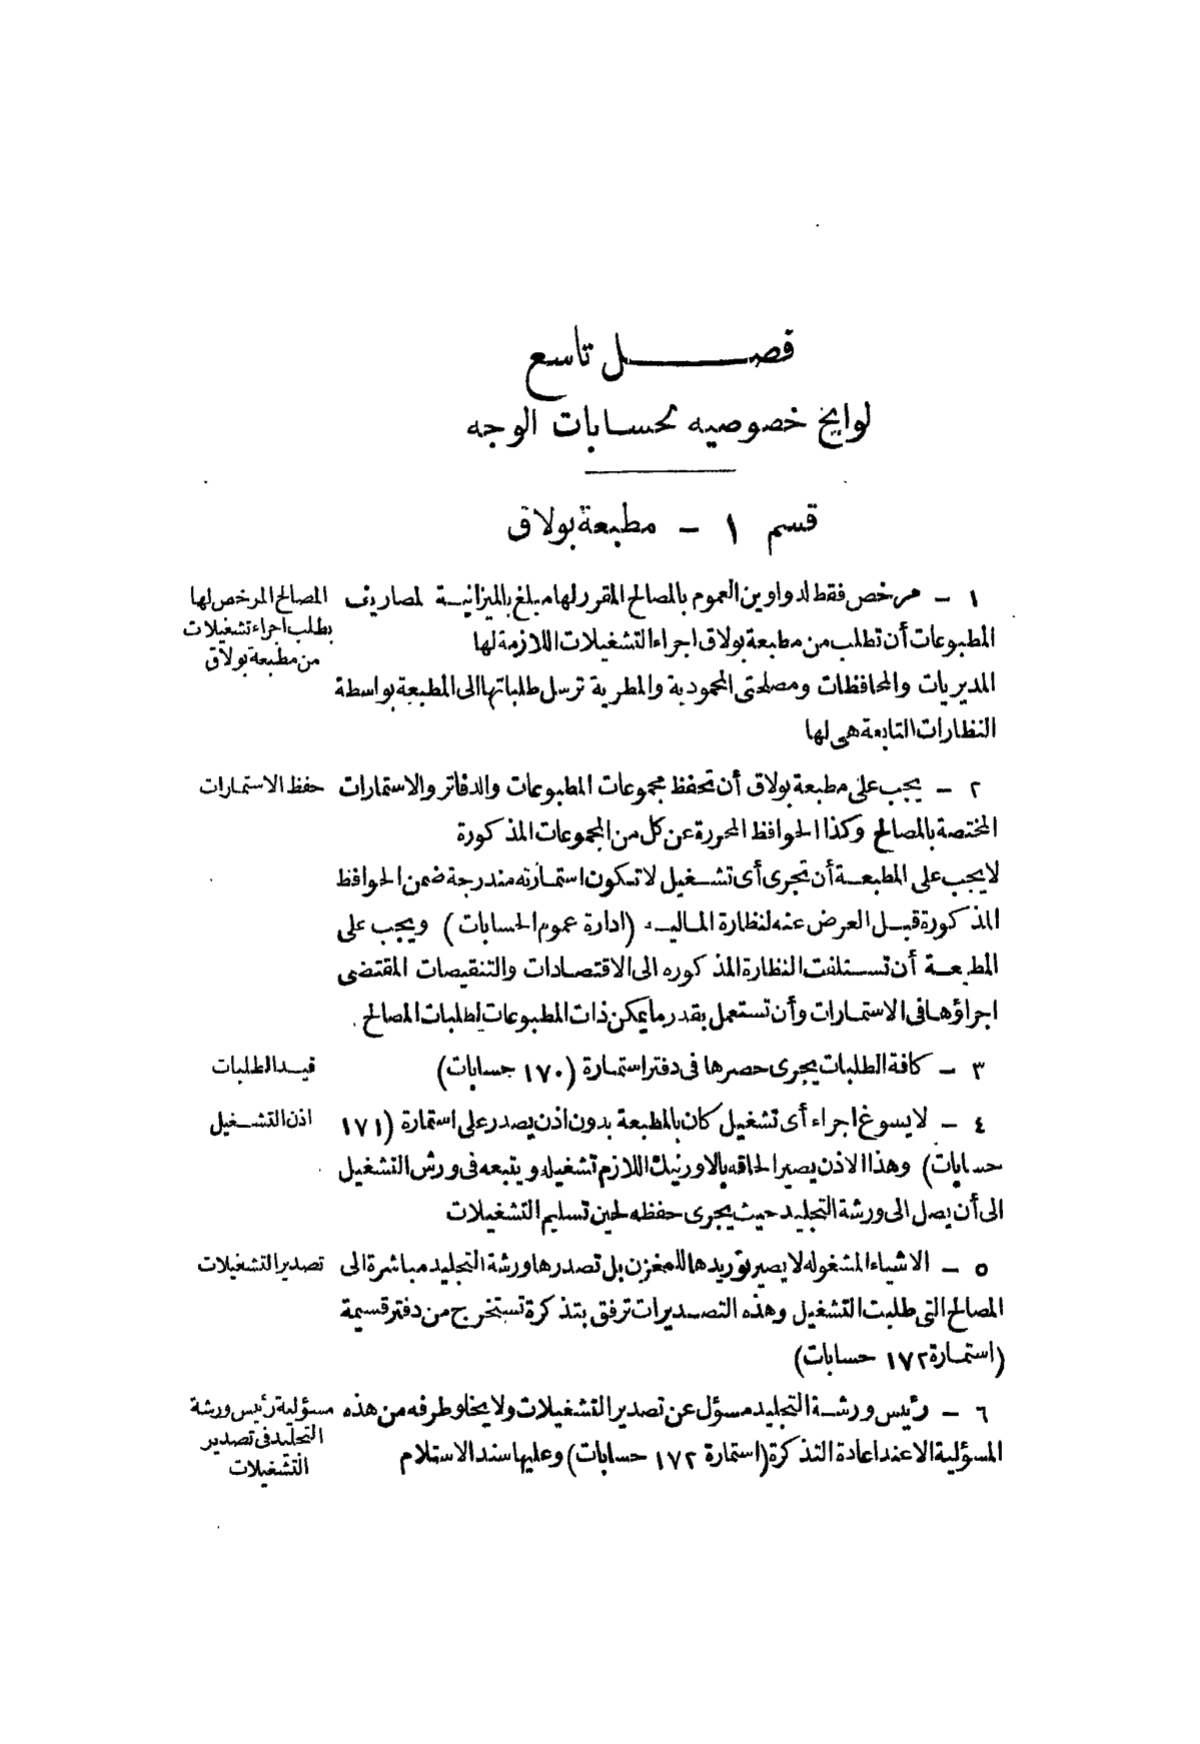 فصل تاسع
لوايح خصوصيه لحسابات الوجه
قسم ١ - مطبعة بولاق
١ - مرخص فقط لدواوين العموم بالمصالح المقرر لها مبلغ بالميزانية لمصاريف
المطبوعات أن تطلب من مطبعة بولاق اجراء التشغيلات اللازمة لها
المصالح المرخص لها
بطلب اجراء تشغيلات
من مطبعة بولاق
المديريات والمحافظات ومصلحتى المحمودية والمطرية ترسل طلباتها الى المطبعة بواسطة
النظارات التابعة هى لها
٢ - يجب على مطبعة بولاق أن تحفظ مجموعات المطبوعات والدفاتر والاستمارات
حفظ الاستمارات
المختصة بالمصالح وكذا الحوافظ المحررة عن كل من المجموعات المذكورة
لا يجب على المطبعة أن تجرى أى تشغيل لا تكون استمارته مندرجة ضمن الحوافظ
المذكورة قبل العرض عنه لنظارة الماليه (ادارة عموم الحسابات) ويجب على
المطبعة أن تستلفت النظارة المذكوره الى الاقتصادات والتنقيصات المقتضى
اجراؤها فى الاستمارات وأن تستعمل بقدر ما يمكن ذات المطبوعات لطلبات المصالح .
٣ - كافة الطلبات يجرى حصرها فى دفتر استمارة (١٧٠ حسابات)
قيد الطلبات
٤ - لا يسوغ اجراء أى تشغيل كان بالمطبعة بدون اذن يصدر على استمارة (١٧١
اذن التشغيل
حسابات) وهذا الاذن يصير الحاقه بالاورنيك اللازم تشغيله ويتبعه فى ورش التشغيل
الى أن يصل الى ورشة التجليد حيث يجرى حفظه لحين تسليم التشغيلات
٥ - الاشياء المشغوله لا يصير توريدها للمغزن بل تصدرها ورشة التجليد مباشرة الى
تصدير التشغيلات
المصالح التى طلبت التشغيل وهذه التصديرات ترفق بتذكرة تستخرج من دفتر قسيمة
(استمارة ١٧٢ حسابات)
٦ - رئيس ورشة التجليد مسؤل عن تصدير التشغيلات ولا يخلو طرفه من هذه
المسؤلية الا عند اعادة التذكرة (استمارة ١٧٢ حسابات) وعليها سند الاستلام
مسؤلية رئيس ورشة
التجليد فى تصدير
التشغيلات